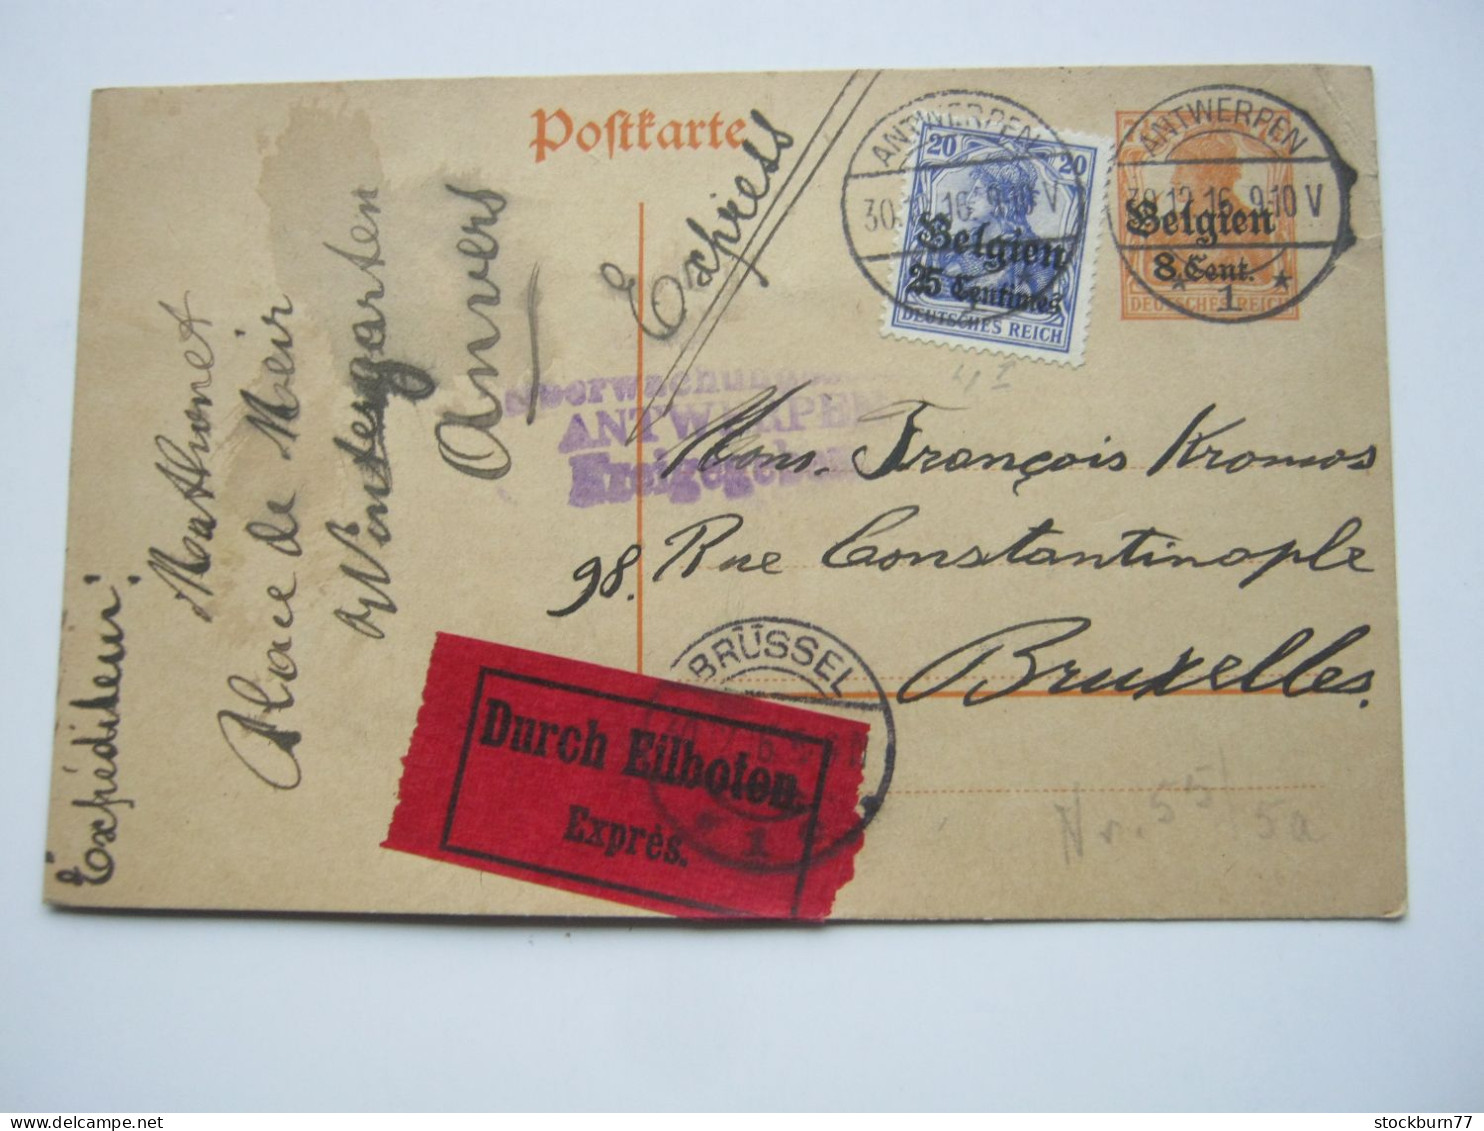 Postkarte
Express
ANTWERPEN
20 20
30. 16. 9-10 V
Belgien
25 Centimes
DEUTSCHES REICH
ANTWERPEN
30.12.16. 9-10 V
Belgien
8 Cent.
* 1 *
DEUTSCHES REICH
ANTWERPEN
Freigegeben
Mons. François Kromos
98. Rue Constantinople
Bruxelles.
Expéditeur:
Mathonet
Place de Meir
Wintergarten
Anvers
BRÜSSEL
1
Durch Eilboten.
Exprès.
Nr. 55
5a
stockburn77